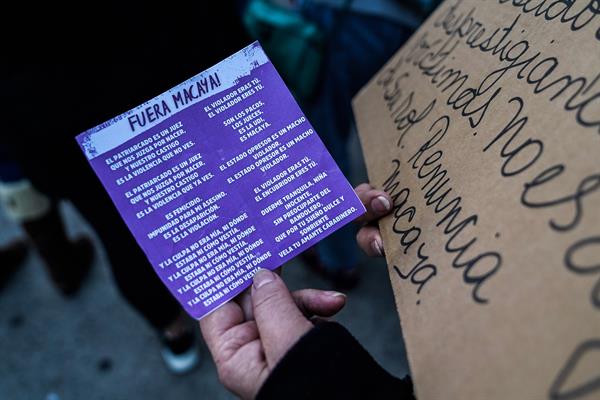 FUERA MACAYA!
EL PATRIARCADO ES UN JUEZ
QUE NOS JUZGA POR NACER,
Y NUESTRO CASTIGO
ES LA VIOLENCIA QUE NO VES.
EL PATRIARCADO ES UN JUEZ
QUE NOS JUZGA POR NACER,
Y NUESTRO CASTIGO
ES LA VIOLENCIA QUE YA VES.
ES FEMICIDIO.
IMPUNIDAD PARA MI ASESINO.
ES LA DESAPARICIÓN.
ES LA VIOLACIÓN.
Y LA CULPA NO ERA MÍA, NI DÓNDE
ESTABA NI CÓMO VESTÍA.
Y LA CULPA NO ERA MÍA, NI DÓNDE
ESTABA NI CÓMO VESTÍA.
Y LA CULPA NO ERA MÍA, NI DÓNDE
ESTABA NI CÓMO VESTÍA.
Y LA CULPA NO ERA MÍA, NI DÓNDE
ESTABA NI CÓMO VESTÍA.
EL VIOLADOR ERAS TÚ.
EL VIOLADOR ERES TÚ.
SON LOS PACOS,
LOS JUECES,
ES LA UDI,
ES MACAYA.
EL ESTADO OPRESOR ES UN MACHO
VIOLADOR.
EL ESTADO OPRESOR ES UN MACHO
VIOLADOR.
EL VIOLADOR ERAS TÚ.
EL ENCUBRIDOR ERES TÚ.
DUERME TRANQUILA, NIÑA
INOCENTE,
SIN PREOCUPARTE DEL
BANDOLERO,
QUE POR TU SUEÑO DULCE Y
SONRIENTE
VELA TU AMANTE CARABINERO.
desprestigiando
víctimas No es
Renuncia
macaya.